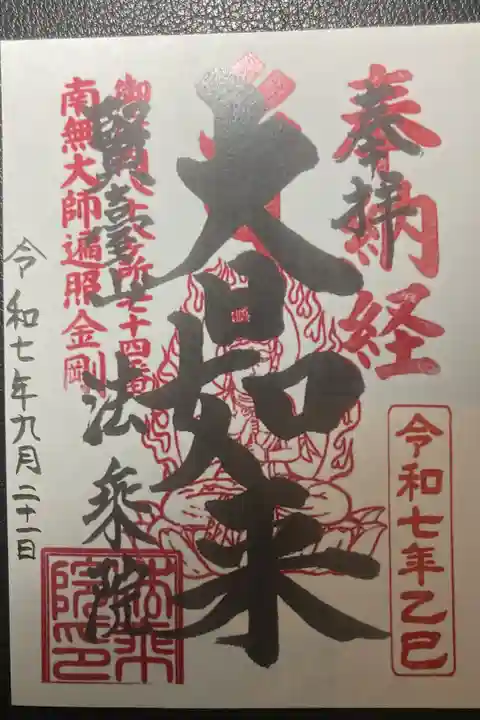 奉拝
納経
令和七年乙巳
大日如来
賢臺山
法乗院
御府内八十八ヶ所七十四番
南無大師遍照金剛
令和七年九月二十一日
法乗院印